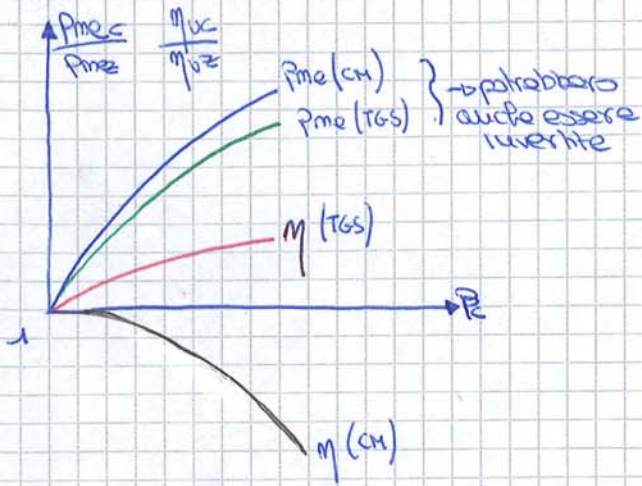 Pmec ηuc
Pmez ηuz
Pme (CM)
Pme (TGS)
→ potrebbero
anche essere
invertite
η (TGS)
Pc
1
η (CM)